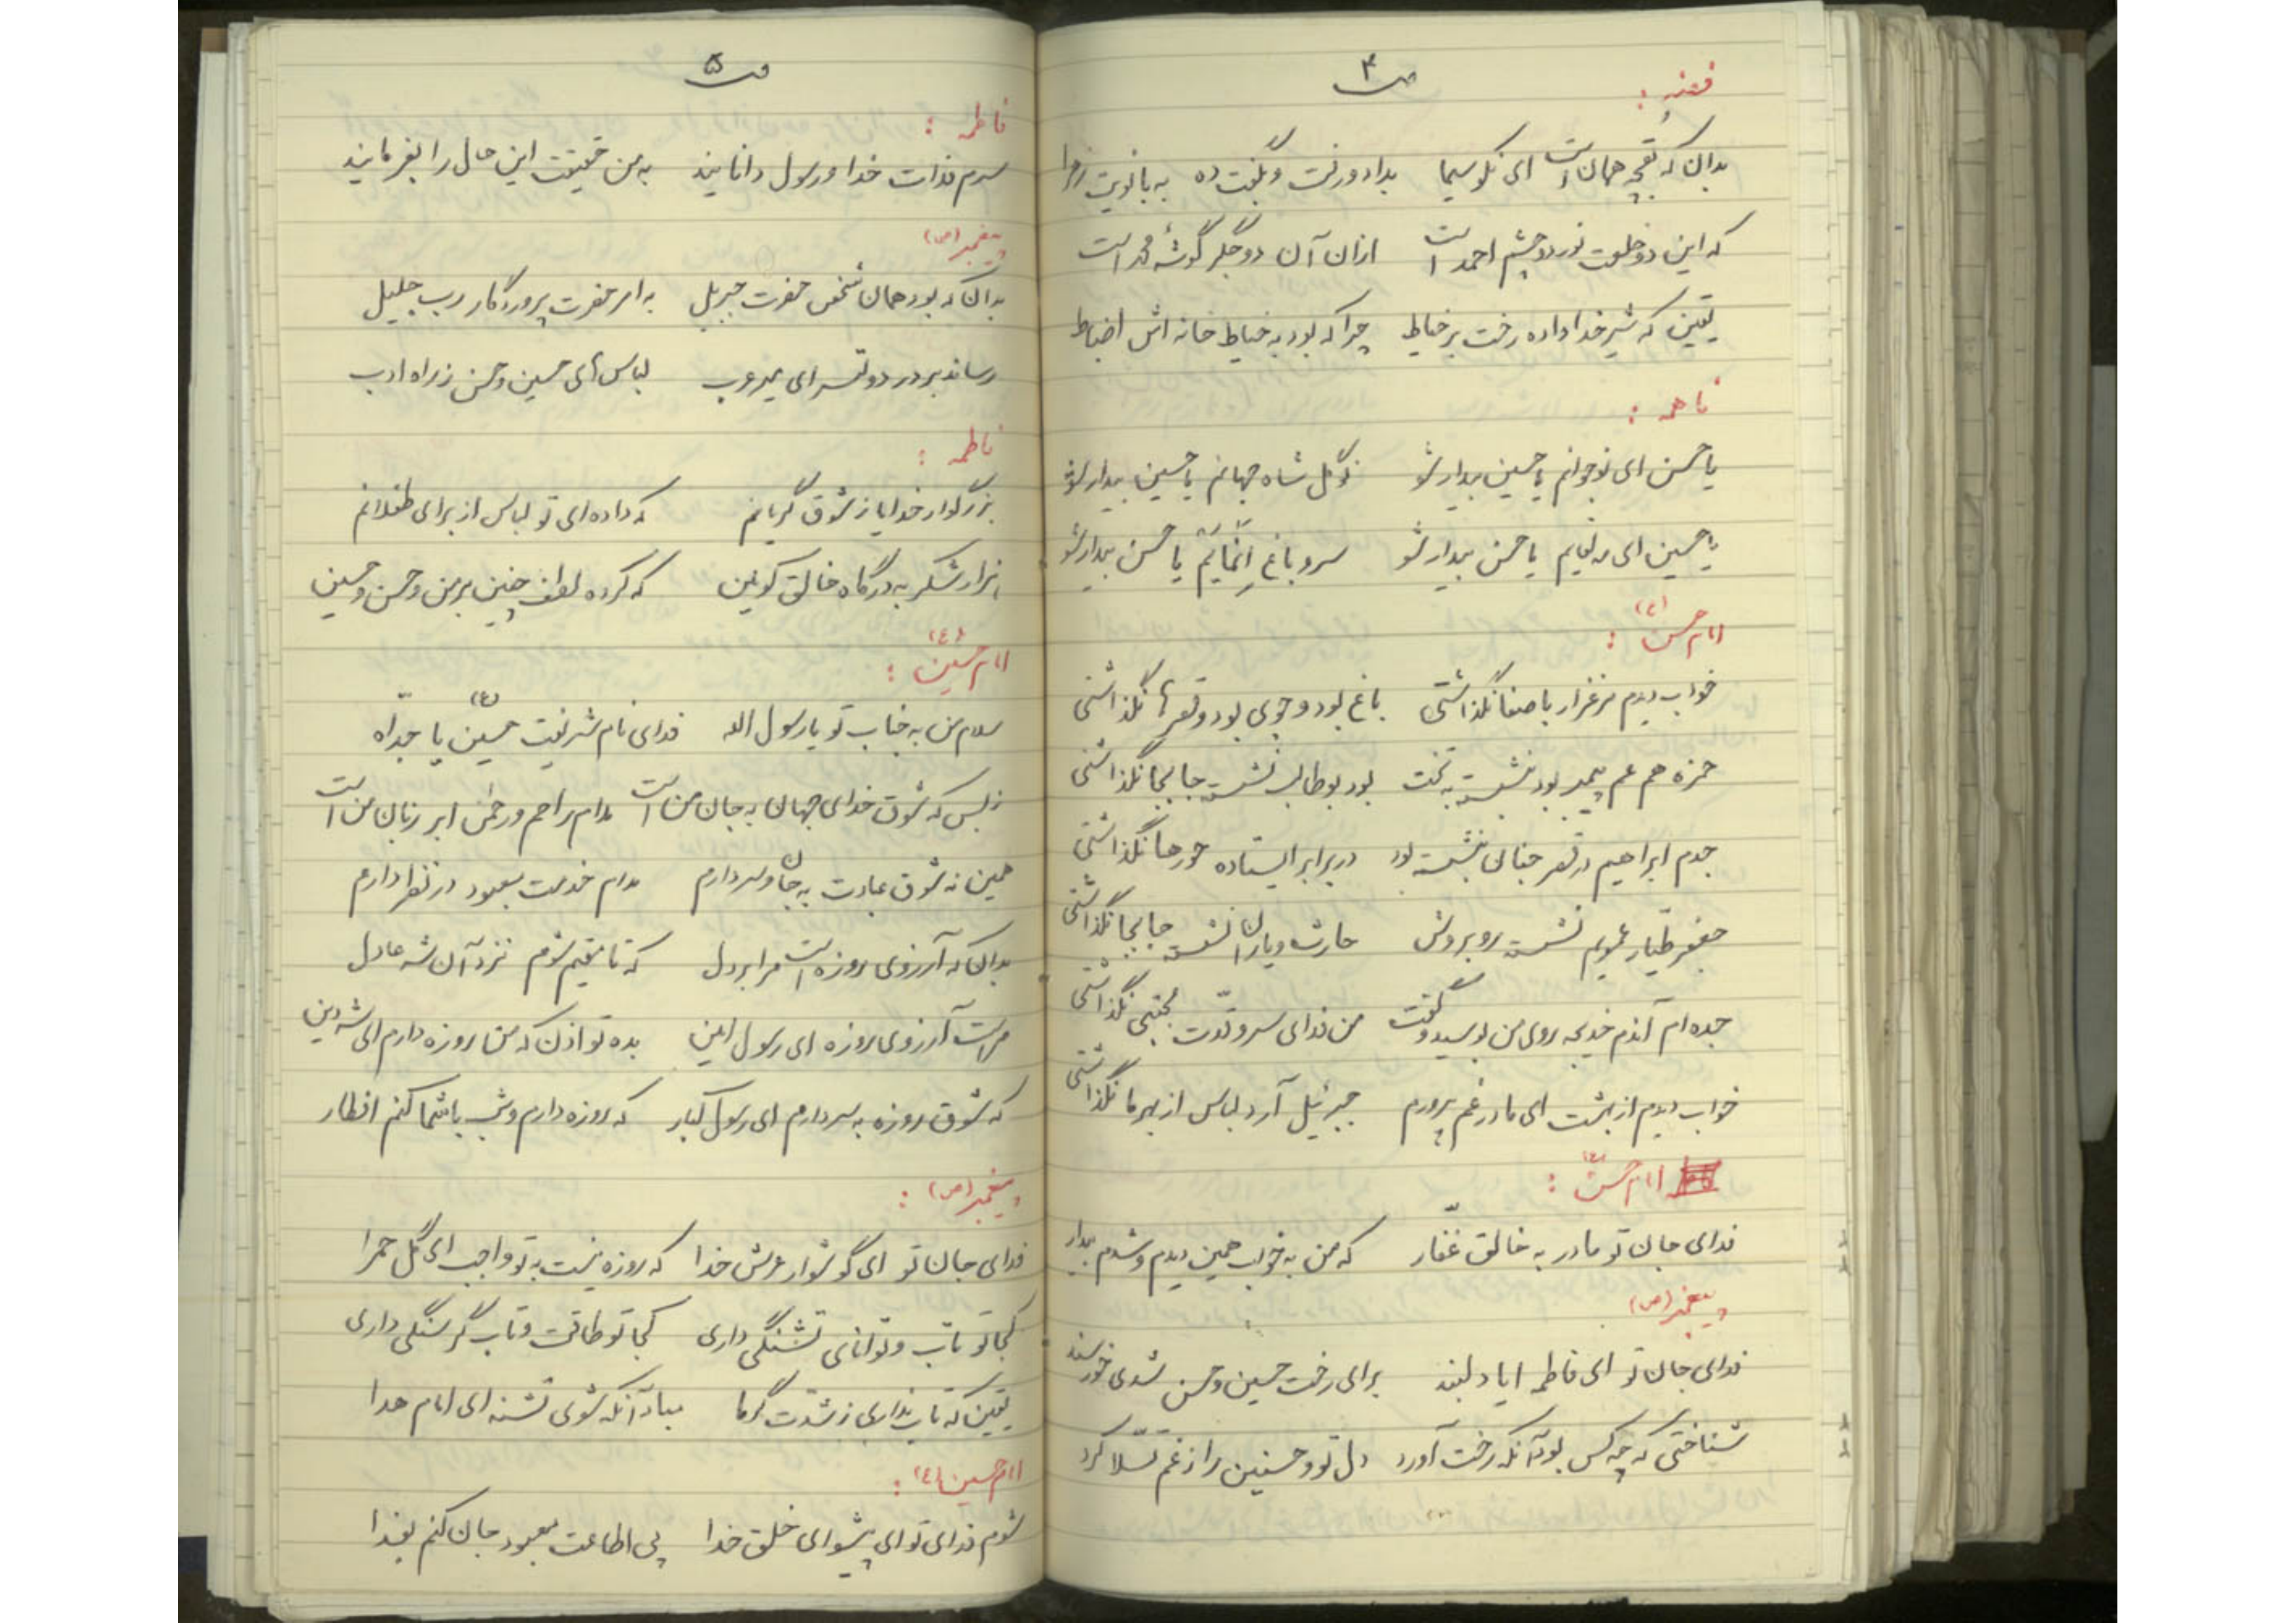 ص ۴
فضه :
بدان که بقچه همان است ای نکو سیما    بداد و رفت و بگفت ده به بانویت زهرا
که این دو خلعت نور دو چشم احمد است    از آن آن دو جگر گوشهٔ محمد است
یقین که شیر خدا داده رخت بر خیاط    چرا که بود به خیاط خانه اش
فاطمه :
یا حسن ای نوجوانم یا حسین بیدار شو    نوگل شاه جهانم یا حسین بیدار شو
یا حسین ای مه لقایم یا حسن بیدار شو    سرو باغ إنّمایَم یا حسن بیدار شو
امام حسن (ع) :
خواب دیدم مرغزار با صفا نگذاشتی    باغ بود و جوی بود و قصرها نگذاشتی
حمزه هم عم پیمبر بود بنشسته به تخت    بود بوطالب نشسته جابجا نگذاشتی
جدم ابراهیم در قصر جنان بنشسته بود    در برابر ایستاده حورها نگذاشتی
جعفر طیّار عمویم نشسته روبروش    حارث و یاران نشسته جابجا نگذاشتی
جده ام آندم خدیجه روی من بوسید و گفت    من فدای سرو قدّت مجتبی نگذاشتی
خواب دیدم از بهشت ای مادر غم پرورم    جبرئیل آرد لباس از بهر ما نگذاشتی
امام حسن (ع) :
فدای جان تو مادر به خالق غفّار    که من به خواب همین دیدم و شدم بیدار
پیغمبر (ص)
فدای جان تو ای فاطمه ایا دلبند    برای رخت حسین و حسن شدی خورسند
شناختی که چه کس بود آنکه رخت آورد    دل تو و حسنین را ز غم تسلّا کرد
ص ۵
فاطمه :
سرم فدات خدا و رسول دانایند    به من حقیقت این حال را بفرمایند
پیغمبر (ص)
بدان که بود همان شخص حضرت جبریل    به امر حضرت پروردگار رب جلیل
رساند بر در دولتسرای میر عرب    لباس های حسین و حسن ز راه ادب
فاطمه :
بزرگوار خدایا ز شوق گریانم    که داده ای تو لباس از برای طفلانم
هزار شکر به درگاه خالق کونین    که کرده لطف چنین بر من و حسن و حسین
امام حسین (ع) :
سلام من به جناب تو یا رسول الله    فدای نام شریفت حسین (ع) یا جدّاه
ز بس که شوق خدای جهان به جان من است    مدام راحم و رحمن ابر زبان من است
همین نه شوق عبادت به جان و سر دارم    مدام خدمت معبود در نظر دارم
بدان که آرزوی روزه است مرا بر دل    که تا مقیم شوم نزد آن شه عادل
مراست آرزوی روزه ای رسول امین    بده تو اذن که من روزه دارم ای شه دین
که شوق روزه به سر دارم ای رسول کبار    که روزه دارم و شب با شما کنم افطار
پیغمبر (ص) :
فدای جان تو ای گوشوار عرش خدا    که روزه نیست به تو واجب ای گل حمرا
کجا تو تاب و توانای تشنگی داری    کجا تو طاقت و تاب گرسنگی داری
یقین که تاب نداری ز شدّت گرما    مباد آنکه شوی تشنه ای امام هدا
امام حسین (ع) :
شوم فدای تو ای پیشوای خلق خدا    پی اطاعت معبود جان کنم بفدا